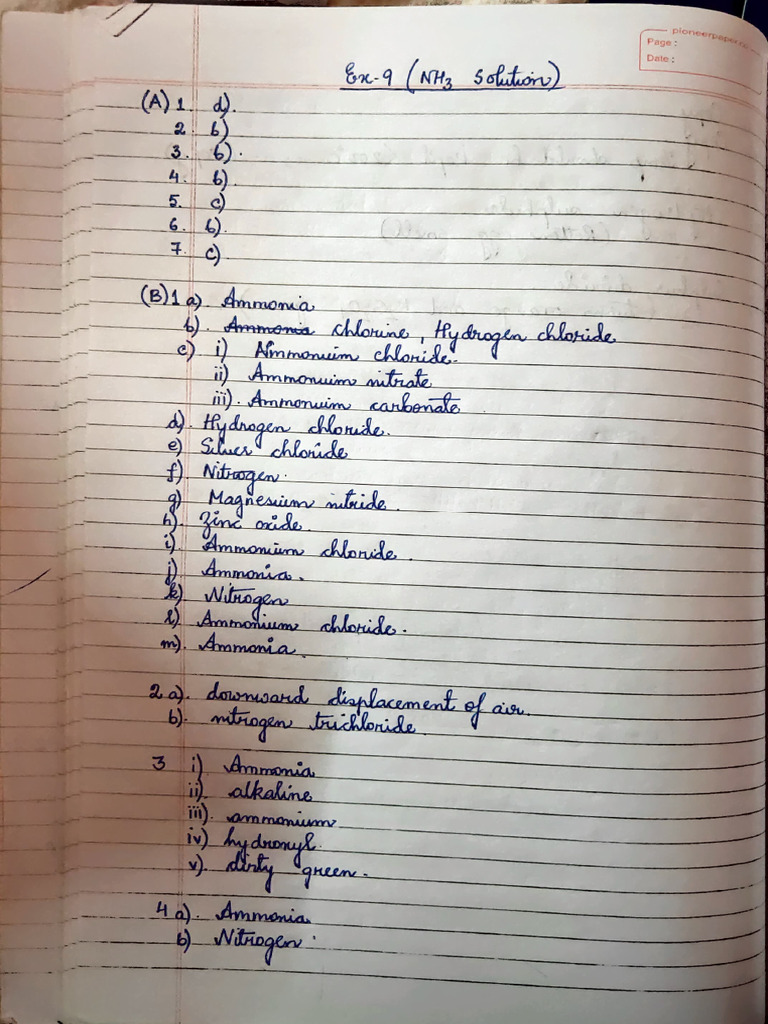 pioneerpaper.co
Page :
Date :
Ex-9 (NH3 Solution)
(A) 1. d).
2 b)
3. b).
4. b).
5. c)
6. b).
7. c)
(B) 1 a). Ammonia
b). Ammonia chlorine, Hydrogen chloride
c) i) Ammonium chloride.
ii) Ammonium nitrate
iii). Ammonium carbonate
d). Hydrogen chloride.
e) Silver chloride
f) Nitrogen.
g) Magnesium nitride.
h). Zinc oxide.
i) Ammonium chloride.
j) Ammonia.
k) Nitrogen
l) Ammonium chloride.
m). Ammonia.
2 a). downward displacement of air.
b). nitrogen trichloride.
3 i) Ammonia
ii). alkaline
iii). ammonium
iv) hydroxyl.
v). dirty green.
4 a). Ammonia.
b) Nitrogen.